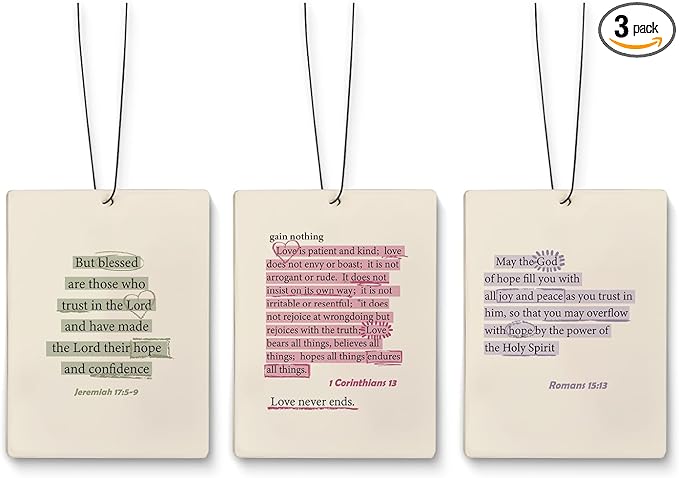 3 pack
But blessed
are those who
trust in the Lord
and have made
the Lord their hope
and confidence
Jeremiah 17:5-9
gain nothing
Love is patient and kind; love
does not envy or boast; it is not
arrogant or rude. It does not
insist on its own way; it is not
irritable or resentful; "it does
not rejoice at wrongdoing but
rejoices with the truth; Love
bears all things, believes all
things; hopes all things endures
all things.
1 Corinthians 13
Love never ends.
May the God
of hope fill you with
all joy and peace as you trust in
him, so that you may overflow
with hope by the power of
the Holy Spirit
Romans 15:13